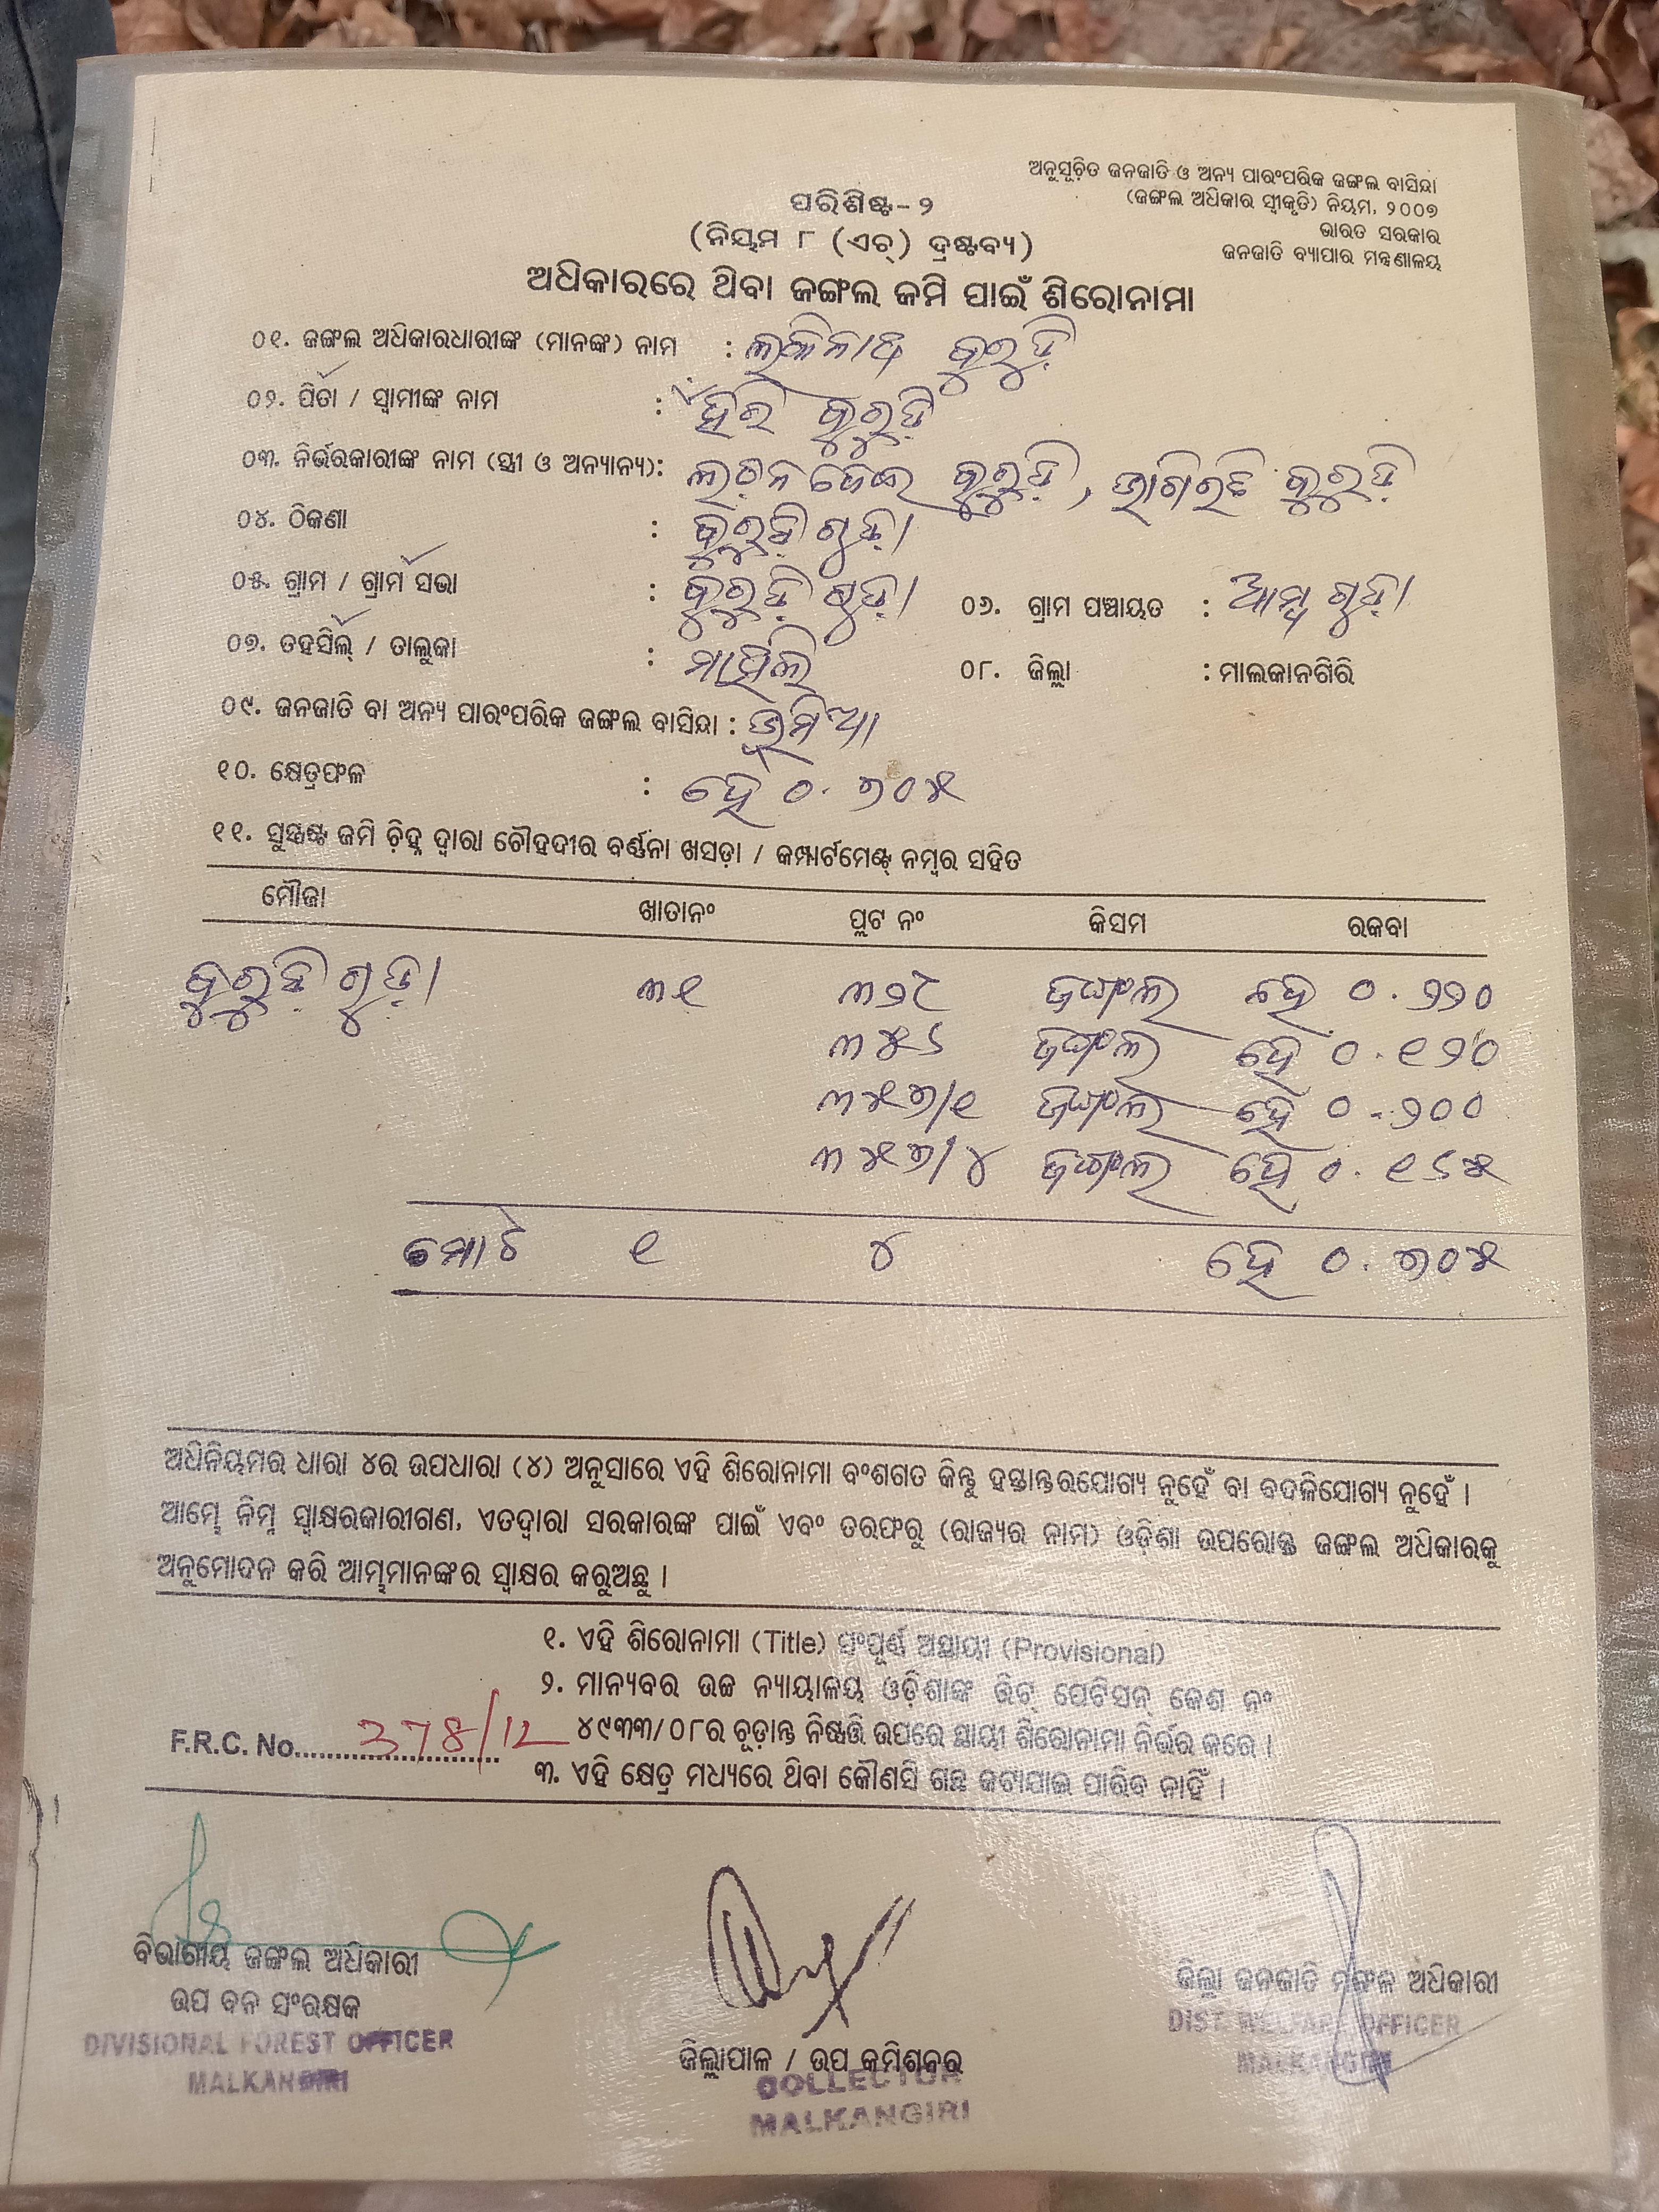 ଅନୁସୂଚିତ ଜନଜାତି ଓ ଅନ୍ୟ ପାରଂପରିକ ଜଙ୍ଗଲ ବାସିନ୍ଦା
(ଜଙ୍ଗଲ ଅଧିକାର ସ୍ୱୀକୃତି) ନିୟମ, ୨୦୦୭
ଭାରତ ସରକାର
ଜନଜାତି ବ୍ୟାପାର ମନ୍ତ୍ରଣାଳୟ
ପରିଶିଷ୍ଟ-୨
(ନିୟମ ୮ (ଏଚ୍) ଦ୍ରଷ୍ଟବ୍ୟ)
ଅଧିକାରରେ ଥିବା ଜଙ୍ଗଲ ଜମି ପାଇଁ ଶିରୋନାମା
୦୧. ଜଙ୍ଗଲ ଅଧିକାରଧାରୀଙ୍କ (ମାନଙ୍କ) ନାମ : କୁରୁଡ଼ି
୦୨. ପିତା / ସ୍ୱାମୀଙ୍କ ନାମ : ହରି କୁରୁଡ଼ି
୦୩. ନିର୍ଭରକାରୀଙ୍କ ନାମ (ସ୍ତ୍ରୀ ଓ ଅନ୍ୟାନ୍ୟ): କୁରୁଡ଼ି, କୁରୁଡ଼ି
୦୪. ଠିକଣା : କୁରୁଡ଼ି ଗୁଡ଼ା
୦୫. ଗ୍ରାମ / ଗ୍ରାମ ସଭା : କୁରୁଡ଼ି ଗୁଡ଼ା ୦୬. ଗ୍ରାମ ପଞ୍ଚାୟତ : ଆମ୍ବ ଗୁଡ଼ା
୦୭. ତହସିଲ୍ / ତାଲୁକା : ମାଥିଲି ୦୮. ଜିଲ୍ଲା : ମାଲକାନଗିରି
୦୯. ଜନଜାତି ବା ଅନ୍ୟ ପାରଂପରିକ ଜଙ୍ଗଲ ବାସିନ୍ଦା : ଭୂମିଆ
୧୦. କ୍ଷେତ୍ରଫଳ : ହେ ୦.୭୦୫
୧୧. ସୁସ୍ପଷ୍ଟ ଜମି ଚିହ୍ନ ଦ୍ୱାରା ଚୌହଦୀର ବର୍ଣ୍ଣନା ଖସଡ଼ା / କମ୍ପାର୍ଟମେଣ୍ଟ୍ ନମ୍ବର ସହିତ
ମୌଜା ଖାତାନଂ ପ୍ଲଟ ନଂ କିସମ ରକବା
କୁରୁଡ଼ି ଗୁଡ଼ା ୩୧ ୩୨୯ ଜଙ୍ଗଲ ହେ ୦.୨୨୦
୩୫୬ ଜଙ୍ଗଲ ହେ ୦.୧୨୦
୩୫୭/୧ ଜଙ୍ଗଲ ହେ ୦.୨୦୦
୩୫୭/୪ ଜଙ୍ଗଲ ହେ ୦.୧୬୫
ମୋଟ ୧ ୪ ହେ ୦.୭୦୫
ଅଧିନିୟମର ଧାରା ୪ର ଉପଧାରା (୪) ଅନୁସାରେ ଏହି ଶିରୋନାମା ବଂଶଗତ କିନ୍ତୁ ହସ୍ତାନ୍ତରଯୋଗ୍ୟ ନୁହେଁ ବା ବଦଳିଯୋଗ୍ୟ ନୁହେଁ ।
ଆମ୍ଭେ ନିମ୍ନ ସ୍ୱାକ୍ଷରକାରୀଗଣ, ଏତଦ୍ଵାରା ସରକାରଙ୍କ ପାଇଁ ଏବଂ ତରଫରୁ (ରାଜ୍ୟର ନାମ) ଓଡ଼ିଶା ଉପରୋକ୍ତ ଜଙ୍ଗଲ ଅଧିକାରକୁ
ଅନୁମୋଦନ କରି ଆମ୍ଭମାନଙ୍କର ସ୍ୱାକ୍ଷର କରୁଅଛୁ ।
୧. ଏହି ଶିରୋନାମା (Title) ସଂପୂର୍ଣ୍ଣ ଅସ୍ଥାୟୀ (Provisional)
୨. ମାନ୍ୟବର ଉଚ୍ଚ ନ୍ୟାୟାଳୟ ଓଡ଼ିଶାଙ୍କ ରିଟ୍ ପେଟିସନ୍ କେଶ ନଂ
୪୯୩୩/୦୮ର ଚୂଡ଼ାନ୍ତ ନିଷ୍ପତ୍ତି ଉପରେ ସ୍ଥାୟୀ ଶିରୋନାମା ନିର୍ଭର କରେ ।
F.R.C. No. 378/12
୩. ଏହି କ୍ଷେତ୍ର ମଧ୍ୟରେ ଥିବା କୌଣସି ଗଛ କଟାଯାଇ ପାରିବ ନାହିଁ ।
ବିଭାଗୀୟ ଜଙ୍ଗଲ ଅଧିକାରୀ
ଉପ ବନ ସଂରକ୍ଷକ
DIVISIONAL FOREST OFFICER
MALKANGIRI
ଜିଲ୍ଲାପାଳ / ଉପ କମିଶନର
COLLECTOR
MALKANGIRI
ଜିଲ୍ଲା ଜନଜାତି ମଙ୍ଗଳ ଅଧିକାରୀ
DIST. WELFARE OFFICER
MALKANGIRI